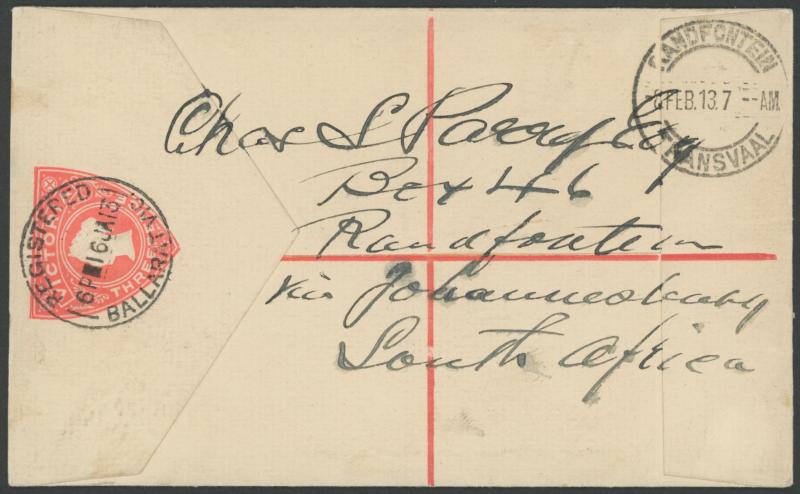 RANDFONTEIN
8 FEB. 13. 7 -- AM.
TRANSVAAL
Chas S Parry Esq
Box 46
Randfontein
via Johannesburg
South Africa
REGISTERED
6PM 16 JA 13
BALLARAT VIC
VICTORIA
THREE